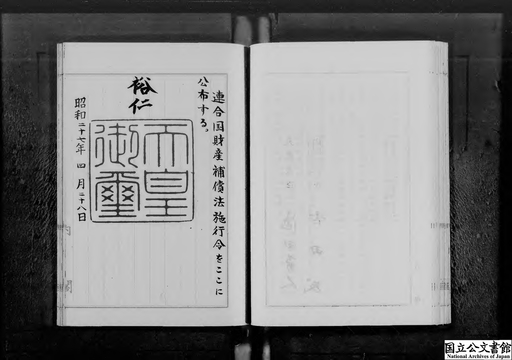 連合国財産補償法施行令をここに
公布する。
裕仁
天皇
御璽
昭和二十七年四月二十八日
国立公文書館
National Archives of Japan